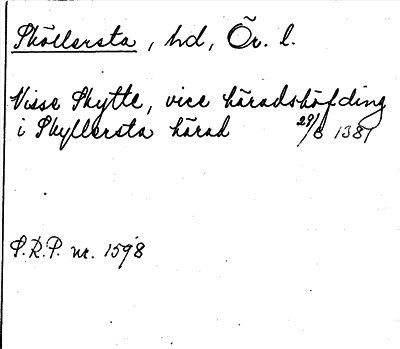 Sköllersta, hd, Ör. l.
Nisse Skytte, vice häradshöfding
i Skyllersta härad 29/8 1381
S.R.P. nr. 1598